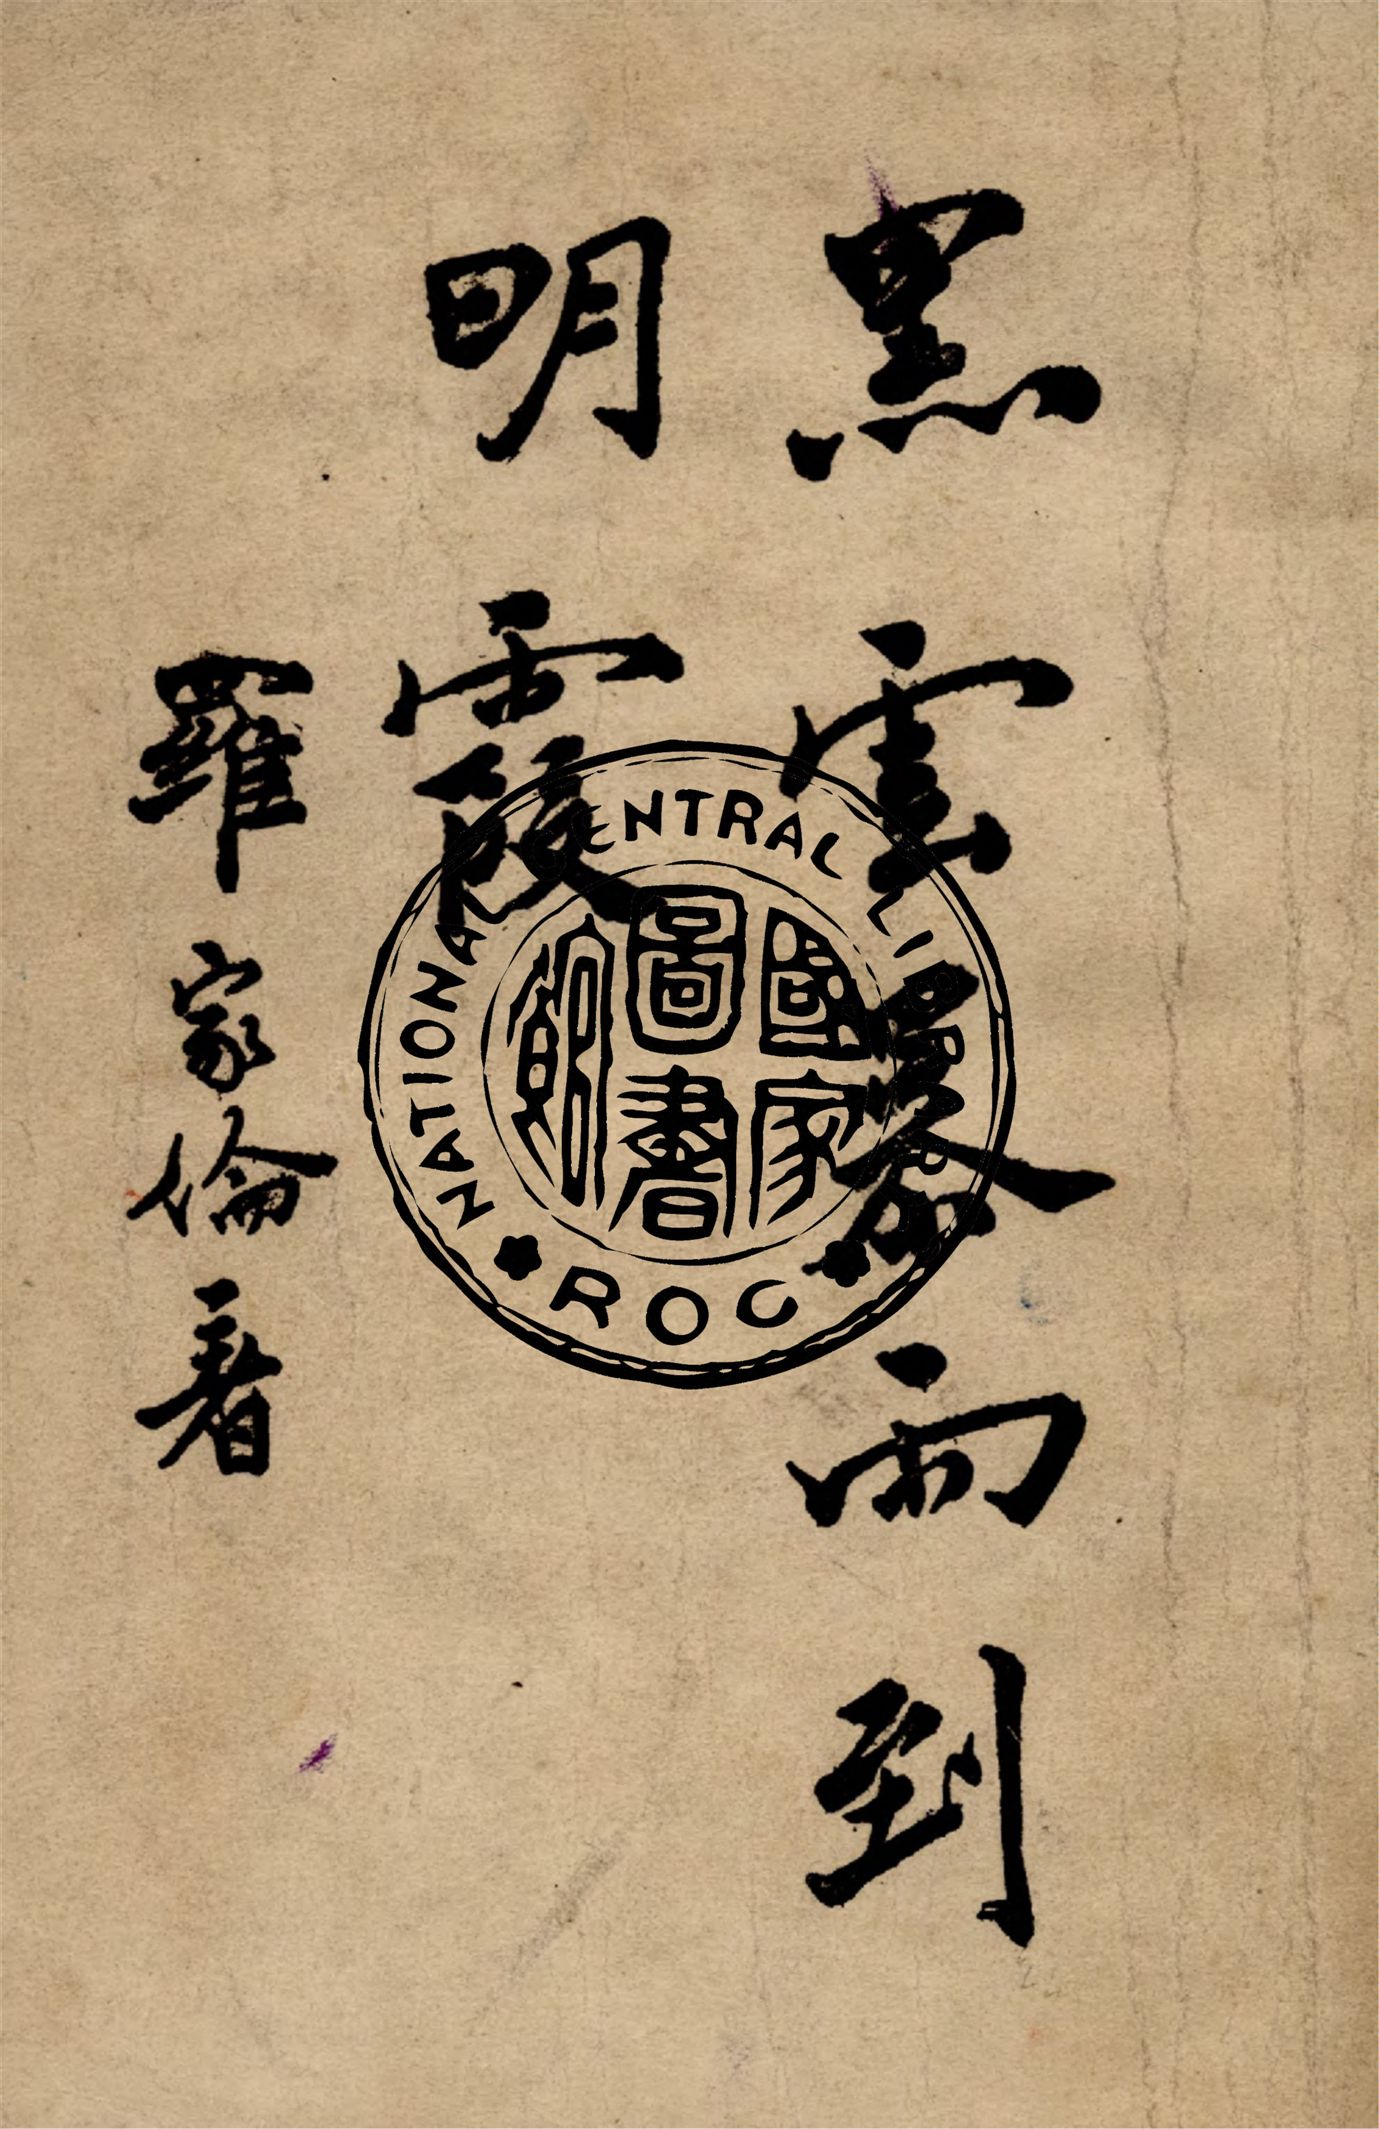 黑雲暴雨到
明霞
羅家倫著
NATIONAL CENTRAL LIBRARY
國家
圖書
館
ROC